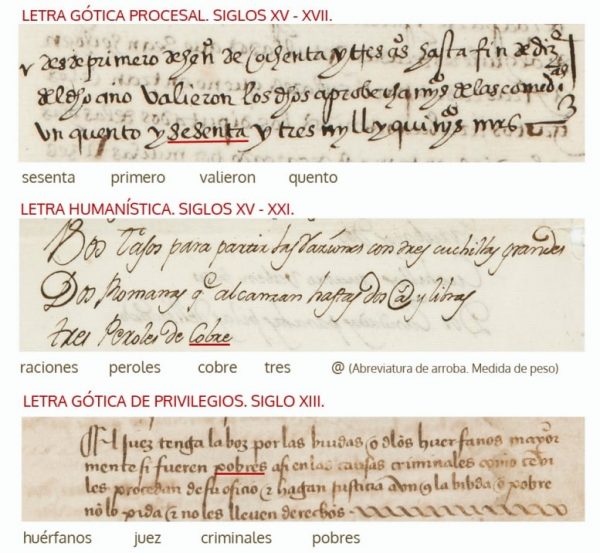 LETRA GÓTICA PROCESAL. SIGLOS XV - XVII.
desde primero de hen̄o de ochenta y tres a͠s hasta fin de
del dho ano valieron los dhos aprobecha mj͠s de las
Un quento y sesenta y tres myll y quiny͠s mrs
sesenta primero valieron quento
LETRA HUMANÍSTICA. SIGLOS XV - XXI.
Dos Tasos para partir las Raziones con dres cuchillas grandes
Dos Romanas q̃ alcanzan hastas dos @ y libras
tres Peroles de Cobre
raciones peroles cobre tres @ (Abreviatura de arroba. Medida de peso)
LETRA GÓTICA DE PRIVILEGIOS. SIGLO XIII.
El juez tenga la boz por las biudas o dlos huerfanos mayor
mente si fueren pobres asi en las causas criminales como ceui
les procedan de su oficio & hagan justicia avn q̃ la bibda o pobre
nõ lo pida & no les lleuen derechos
huérfanos juez criminales pobres